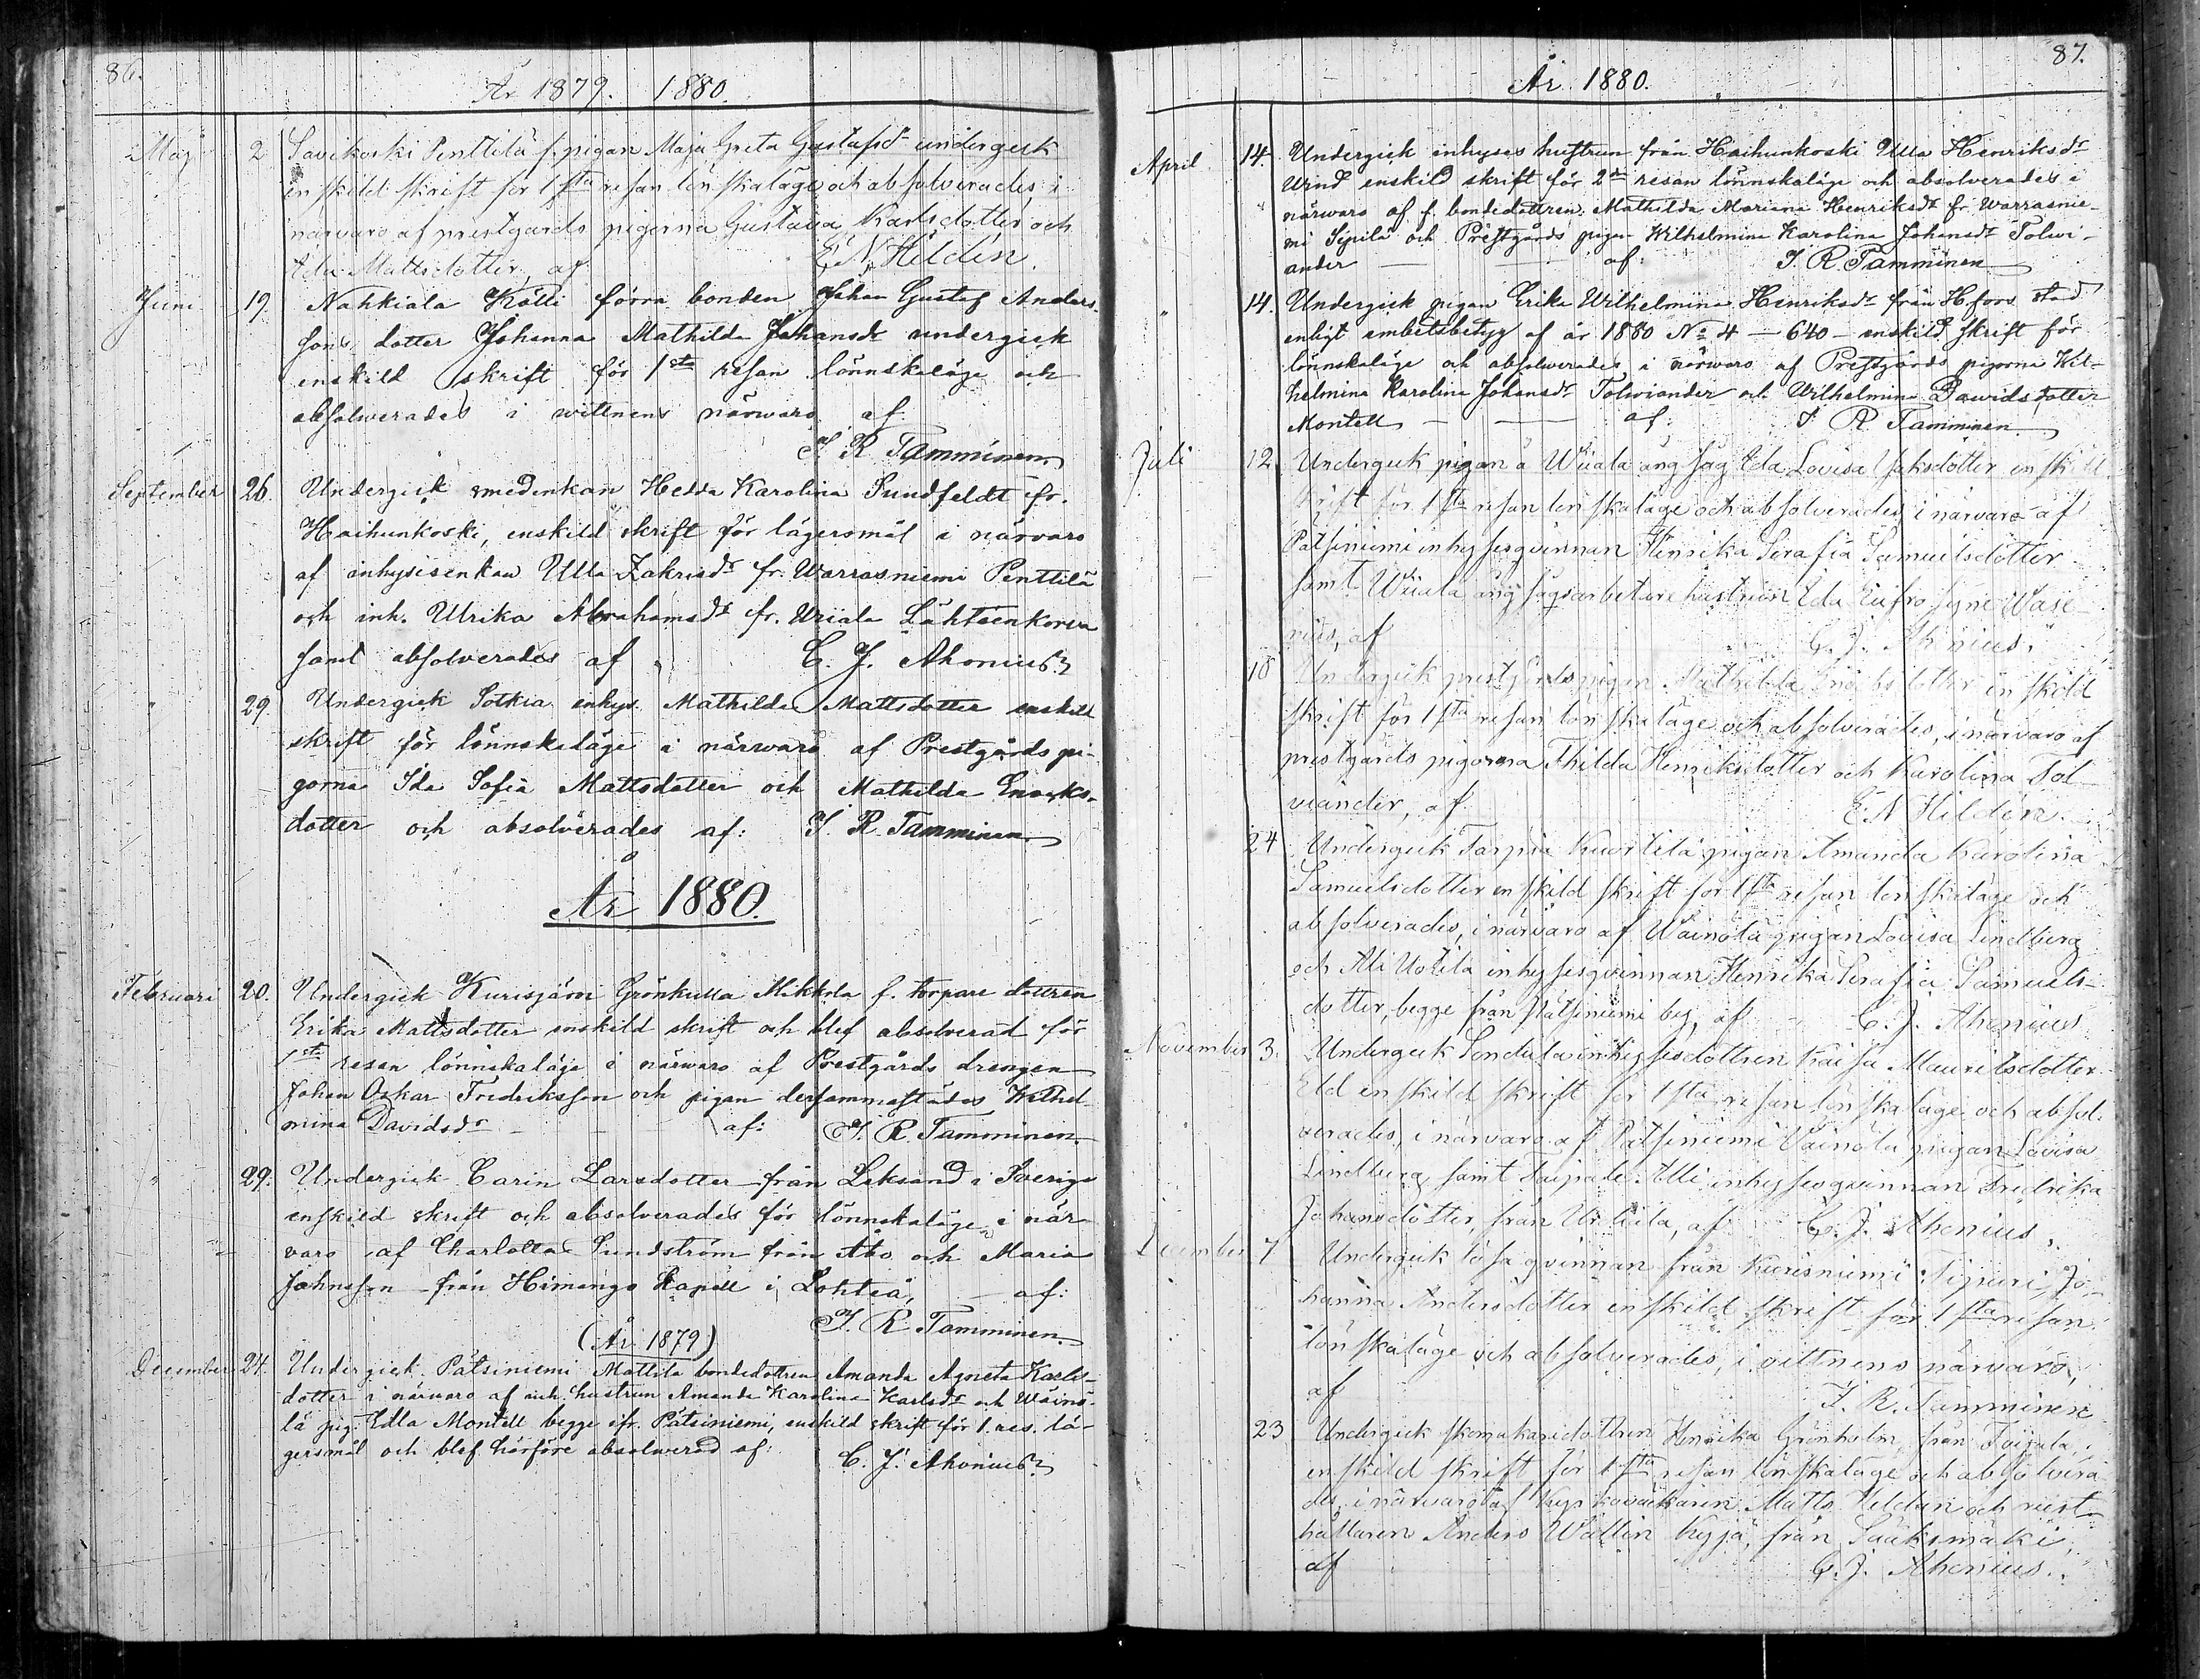 86.
År 1879. 1880.
Maj 2 Savikoski Penttilä f. pigan Maja Greta Gustafsd:r undergick
enskild skrift för 1sta resan lönskaläge och absolverades i
närvaro af prestgårds pigorna Gustava Karlsdotter och
Ida Mattsdotter, af E. N. Hildén.
Juni 19. Nahkiala Kölli förra bonden Johan Gustaf Anders-
sons dotter Johanna Mathilda Johansdr undergick
enskild skrift för 1sta resan lönnskaläge och
absolverades i wittnens närwaro af
J. R. Tamminen
September 26. Undergick smedenkan Hedda Karolina Sundfeldt fr.
Haihunkoski, enskild skrift för lägersmål i närvaro
af inhysisenkan Ulla Zakrisdr fr. Warrasniemi Penttilä
och inh. Ulrika Abrahamsdr fr. Uriala Lähteenkorva
samt absolverades af C. J. Ahonius
" 29. Undergick Sotkia inhys. Mathilda Mattsdotter enskild
skrift för lönnskaläge i närwaro af Prestgårds pi-
gorna Ida Sofia Mattsdotter och Mathilda Enocks-
dotter och absolverades af: J. R. Tamminen
År 1880.
Februari 20. Undergick Kurisjärvi Grönkulla Mikkola f. torpare dottren
Erika Mattsdotter enskild skrift och blef absolverad för
1sta resan lönnskaläge i närwaro af Prestgårds drengen
Johan Oskar Fredriksson och pigan dersammastädes Wilhel-
mina Davidsdr af: J. R. Tamminen
" 29. Undergick Carin Larsdotter från Leksand i Sverige
enskild skrift och absolverades för lönnskaläge i när-
varo af Charlotta Sundström från Åbo och Maria
Johnsson från Himango Kapell i Lohteå, af:
J. R. Tamminen
(År 1879)
December 24. Undergick Pätsiniemi Mattila bondedottren Amanda Agneta Karls-
dotter i närvaro af inh. hustrun Amanda Karolina Karlsdr och Wäinö-
lä pig. Edla Montell begge ifr. Pätsiniemi, enskild skrift för 1. res. lä-
gersmål och blef härföre absolverad af: C. J. Ahonius
87.
År 1880.
April 14. Undergick inhyses hustrun från Haihunkoski Ulla Henriksdr
enskild skrift för 2dra resan lönnskaläge och absolverades i
närwaro af f. bondedottren Mathilda Mariana Henriksdr fr. Warrasnie-
mi Sipilä och Prestgårds pigan Wilhelmina Karolina Johansdr Tolwi-
ander af: J. R. Tamminen
" 14. Undergick pigan Erika Wilhelmina Henriksdr från H.fors stad
enligt embetsbetyg af år 1880 No 4 – 640 – enskild skrift för
lönnskaläge och absolverades, i närwaro af Prestgårds pigorna Wil-
helmina Karolina Johansdr Tolwiander och Wilhelmina Dawidsdotter
Montell af: J. R. Tamminen
Juli 12. Undergick pigan å Wiiala ång såg Ida Lovisa Isaksdotter enskild
skrift för 1sta resan lönskaläge och absolverades, i närvaro af
Pätsiniemi inhysesqvinnan Henrika Serafia Samuelsdotter
samt Wiiala ång sågsarbetare hustrun Ida Eufrosyne Wase-
nius, af C. J. Ahonius.
18 Undergick prestgårdspigan Mathilda Enocksdotter enskild
skrift för 1sta resan lönskaläge och absolverades, i närvaro af
prestgårds pigorna Thilda Henriksdotter och Karolina Tol-
viander, af E. N. Hildén.
24 Undergick Tarpia Kuortila pigan Amanda Karolina
Samuelsdotter enskild skrift för 1sta resan lönskaläge och
absolverades, i närvaro af Wäinölä pigan Lovisa Lindberg
och Ali Uotila inhysesqvinnan Henrika Serafia Samuels-
dotter, begge från Pätsiniemi by, af C. J. Ahonius
November 3. Undergick inhysesdottren Kaisa Mauritsdotter
Eld enskild skrift för 1sta resan lönskaläge och absol-
verades, i närvaro af Pätsiniemi Väinölä pigan Lovisa
Lindberg samt Taipale Alli inhysesqvinnan Fredrika
Johansdotter, från Urdiala, af C. J. Ahonius.
December 7 Undergick lösa qvinnan från Kurisniemi Tipuri Jo-
hanna Andersdotter enskild skrift för 1sta resan
lönskaläge och absolverades, i vittnens närvaro,
af J. R. Tamminen
23 Undergick skomakaredottren Henrika Grönholm från
enskild skrift för 1sta resan lönskaläge och absolvera-
des, i närvaro af kyrkoväktaren Matts Heldan och
hållaren Anders Wallin Kyjä, från Sääksmäki,
af C. J. Ahonius.